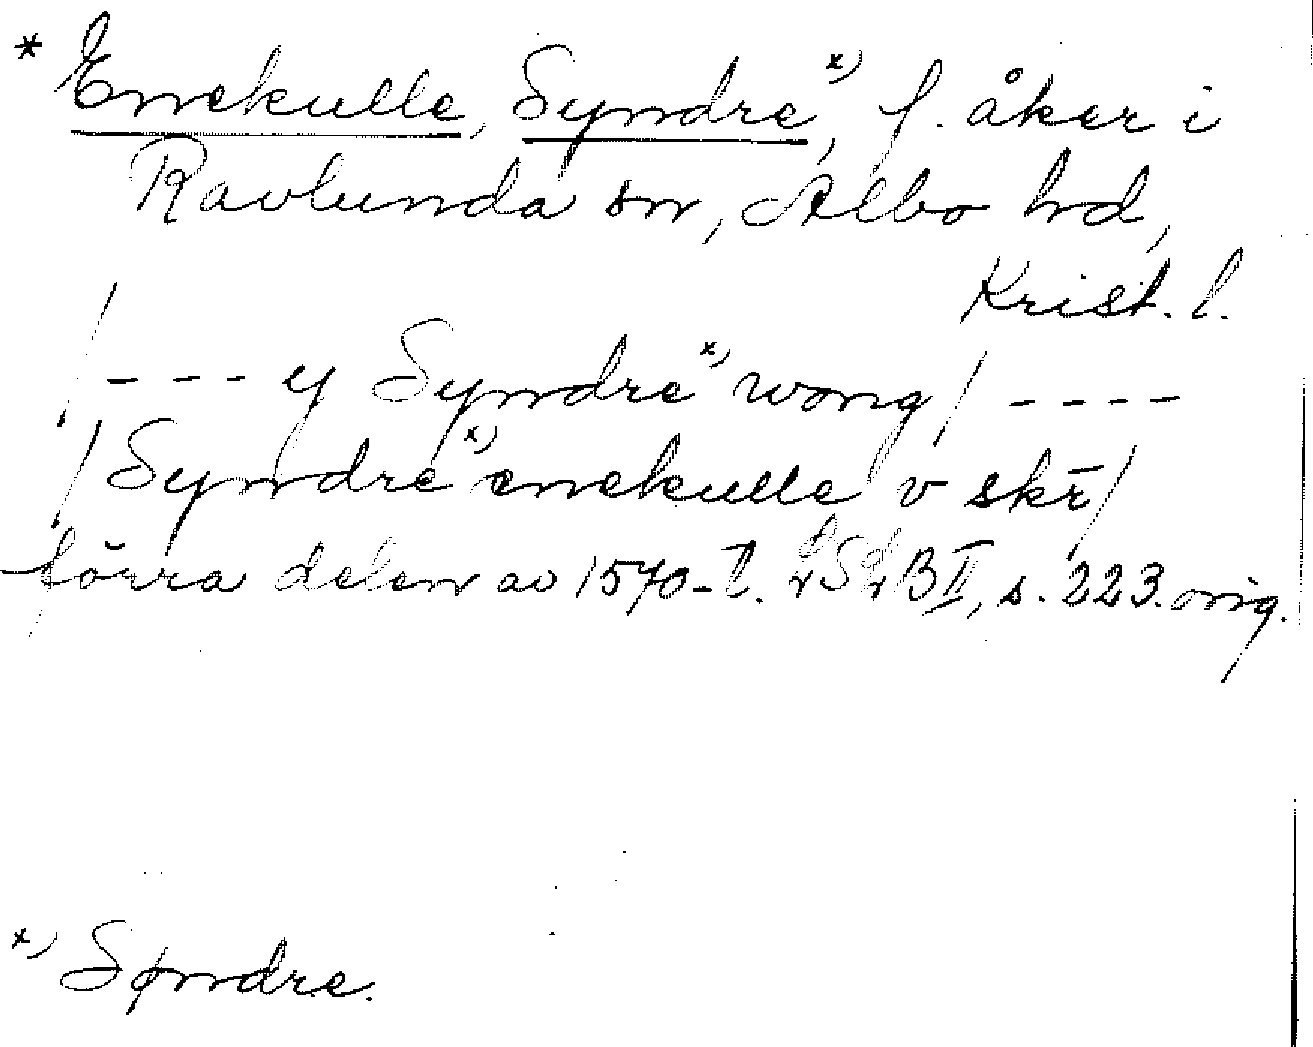 * Enekulle, Syndre x), f. åker i
Ravlunda sn, Albo hd,
Krist. l.
/ - - - y Syndre x) wong / - - - -
/ Syndre x) enekulle v skr /
förra delen av 1570-t. LSLB II, s. 223. orig.
x) Søndre.